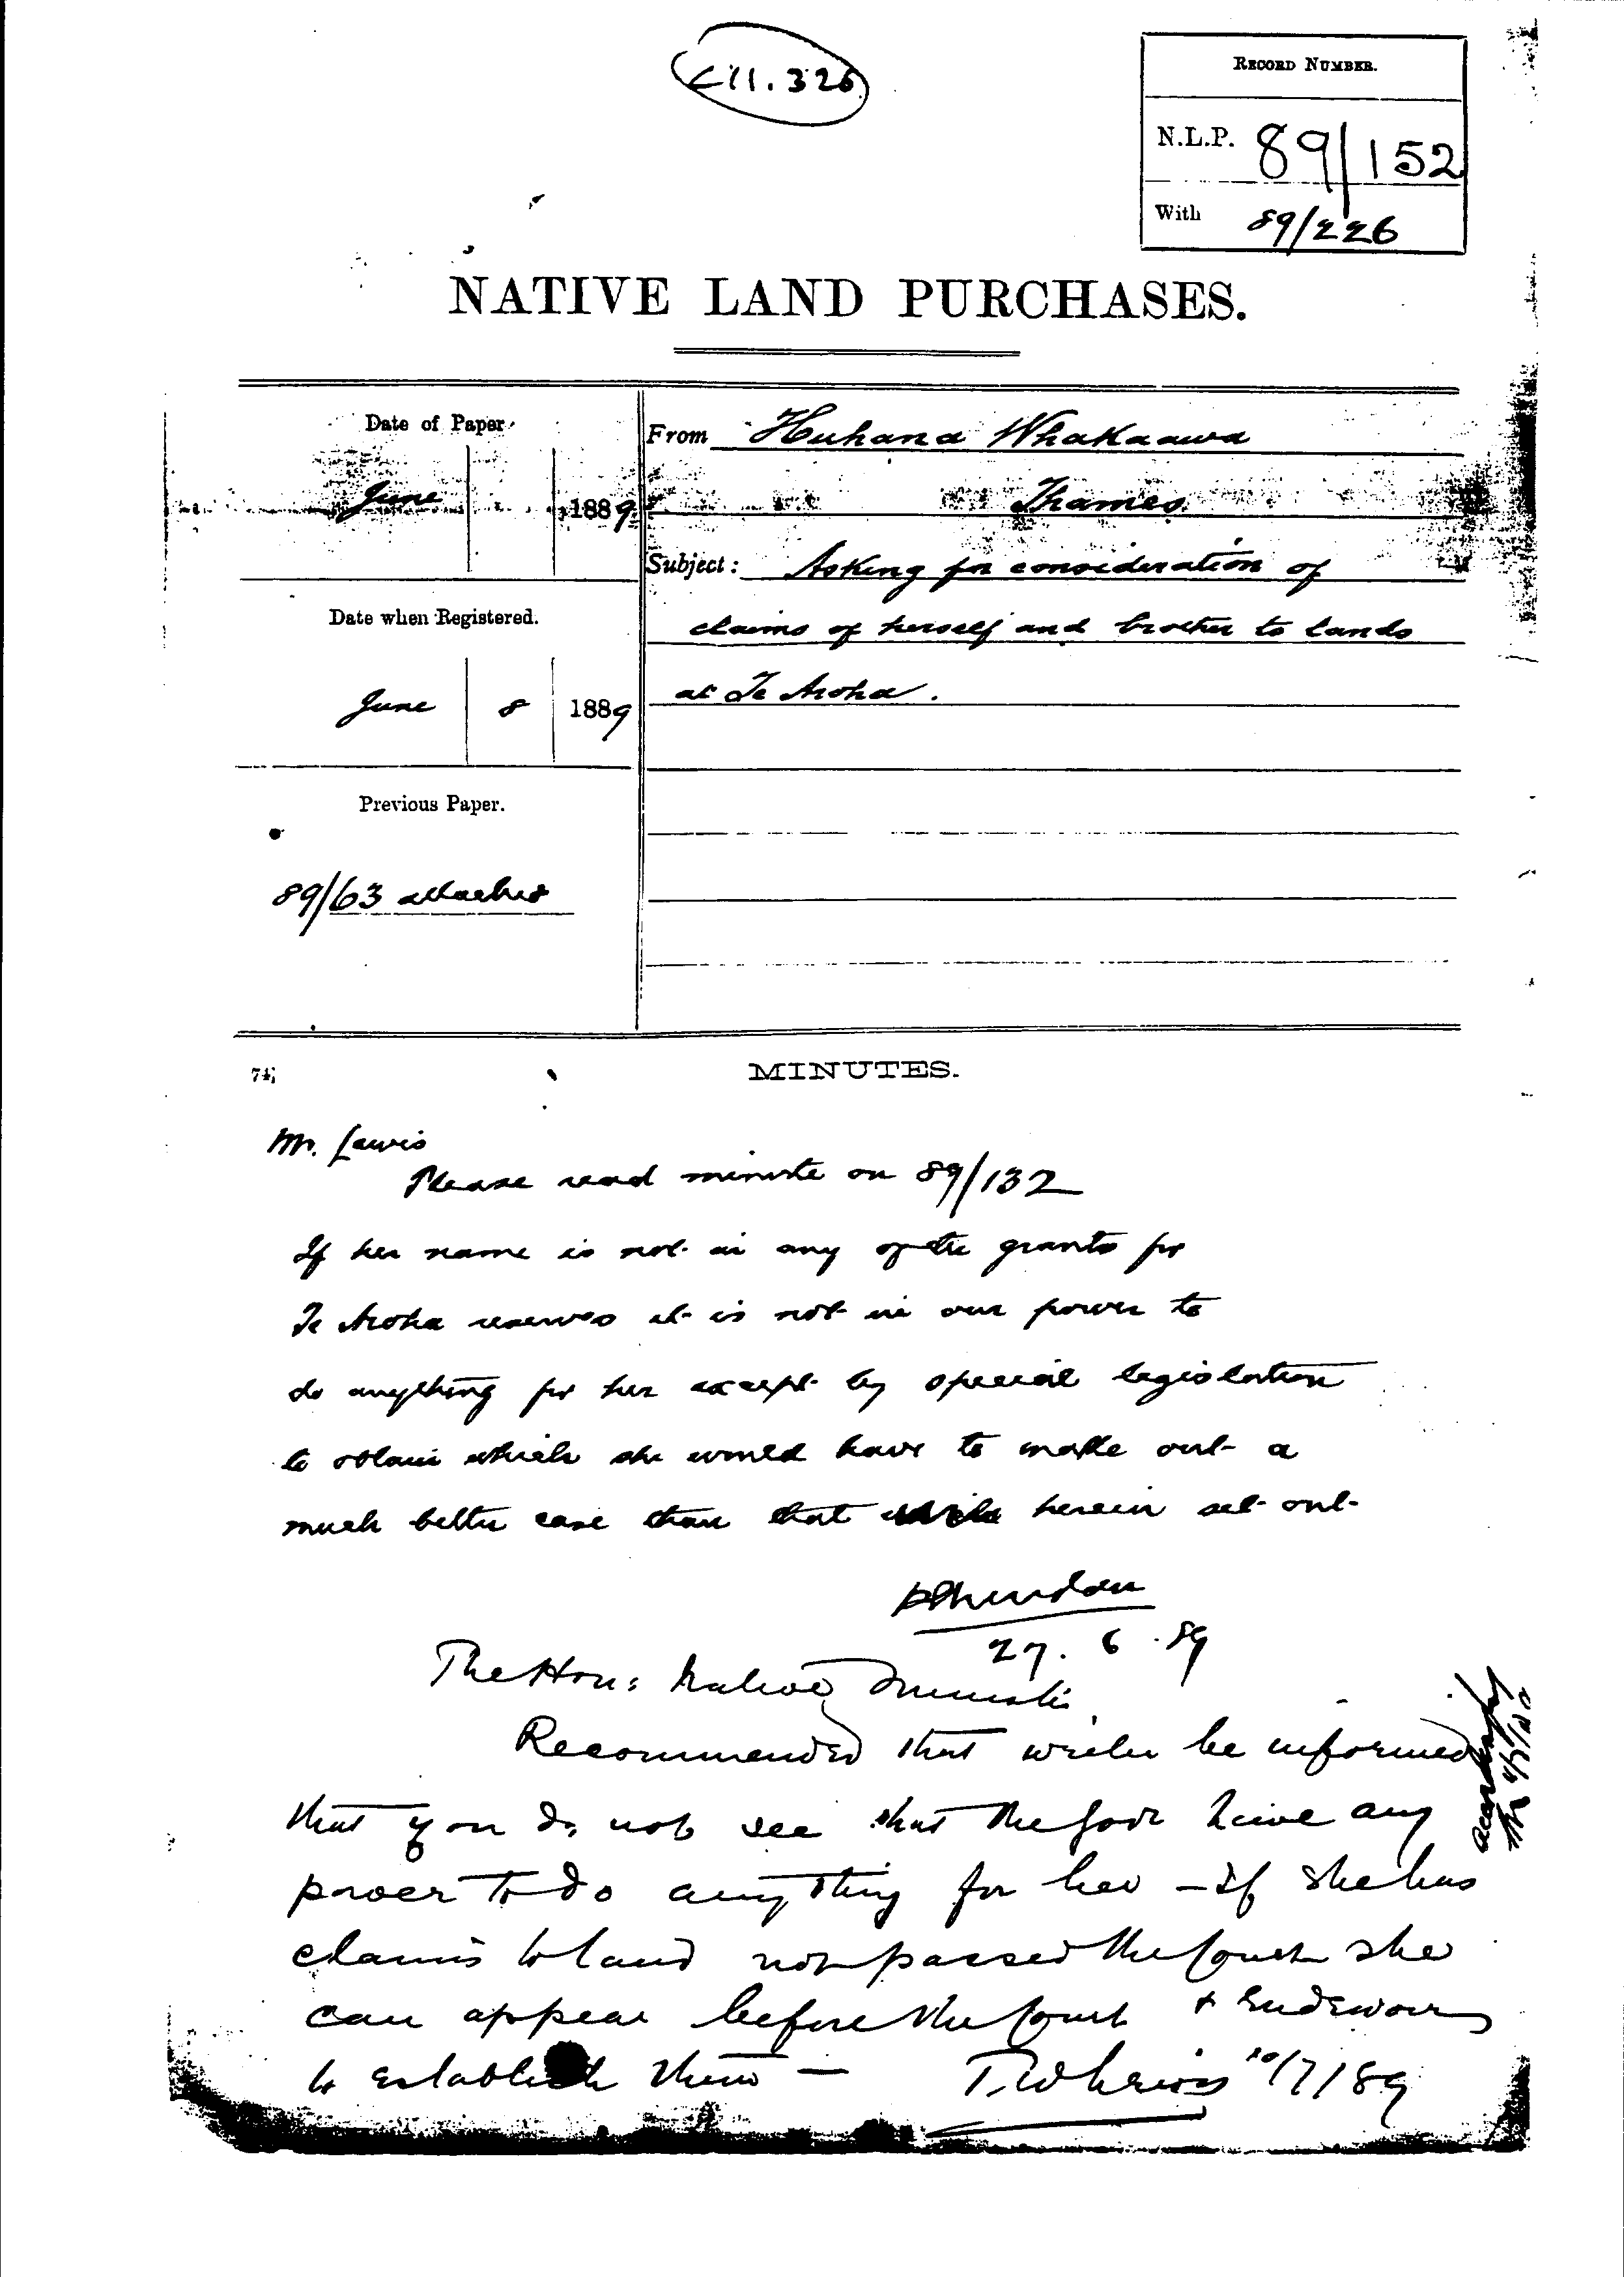 E11.326
RECORD NUMBER.
N.L.P. 89/152
With 89/226
NATIVE LAND PURCHASES.
Date of Paper
June 1889
From Huhana Whakaawa
Thames
Subject: Asking for consideration of
claims of herself and brother to lands
at Te Aroha.
Date when Registered.
June 8 1889
Previous Paper.
89/63 attached
74,
MINUTES.
Mr. Lewis
Please read minute on 89/132
If her name is not in any of the grants for
Te Aroha reserves it is not in our power to
do anything for her except by special legislation
to obtain which she would have to make out a
much better case than that herein set out
27.6.89
The Hon: Native Minister
Recommended that writer be informed
that you do not see that the Govt have any
power to do anything for her - If she has
claims to land not passed the Court she
can appear before the Court & endeavour
to establish them —
T.W. Lewis 10/7/89